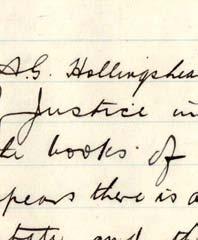 A.G. Hollingshea
Justice in
books of
pears there is a
and